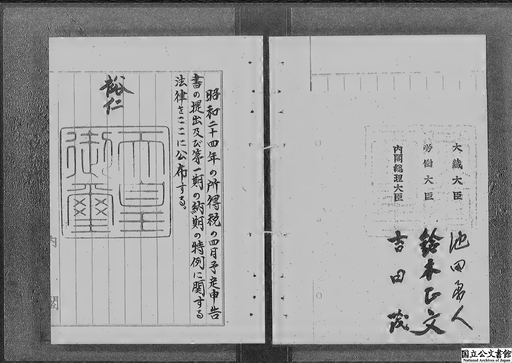 昭和二十四年の所得税の四月予定申告
書の提出及び第一期の納期の特例に関する
法律をここに公布する。
裕仁
天皇
御璽
内閣総理大臣
吉田茂
労働大臣
鈴木正文
大蔵大臣
池田勇人
国立公文書館
National Archives of Japan